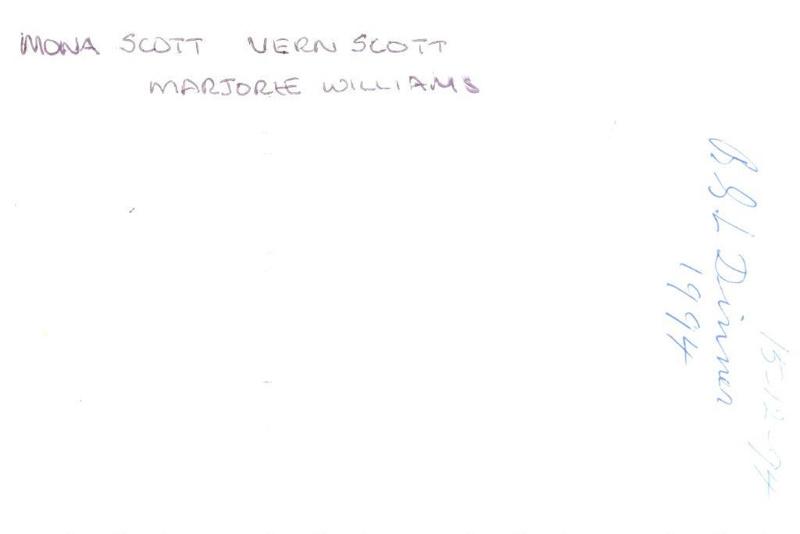 MONA SCOTT VERN SCOTT
MARJORIE WILLIAMS
15-12-94
B&L Dinner
1994